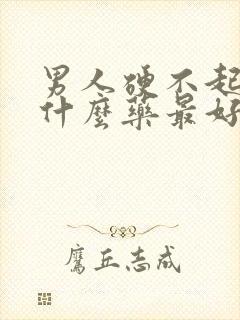 男人硬不起
什麼藥最好
鷹丘志成